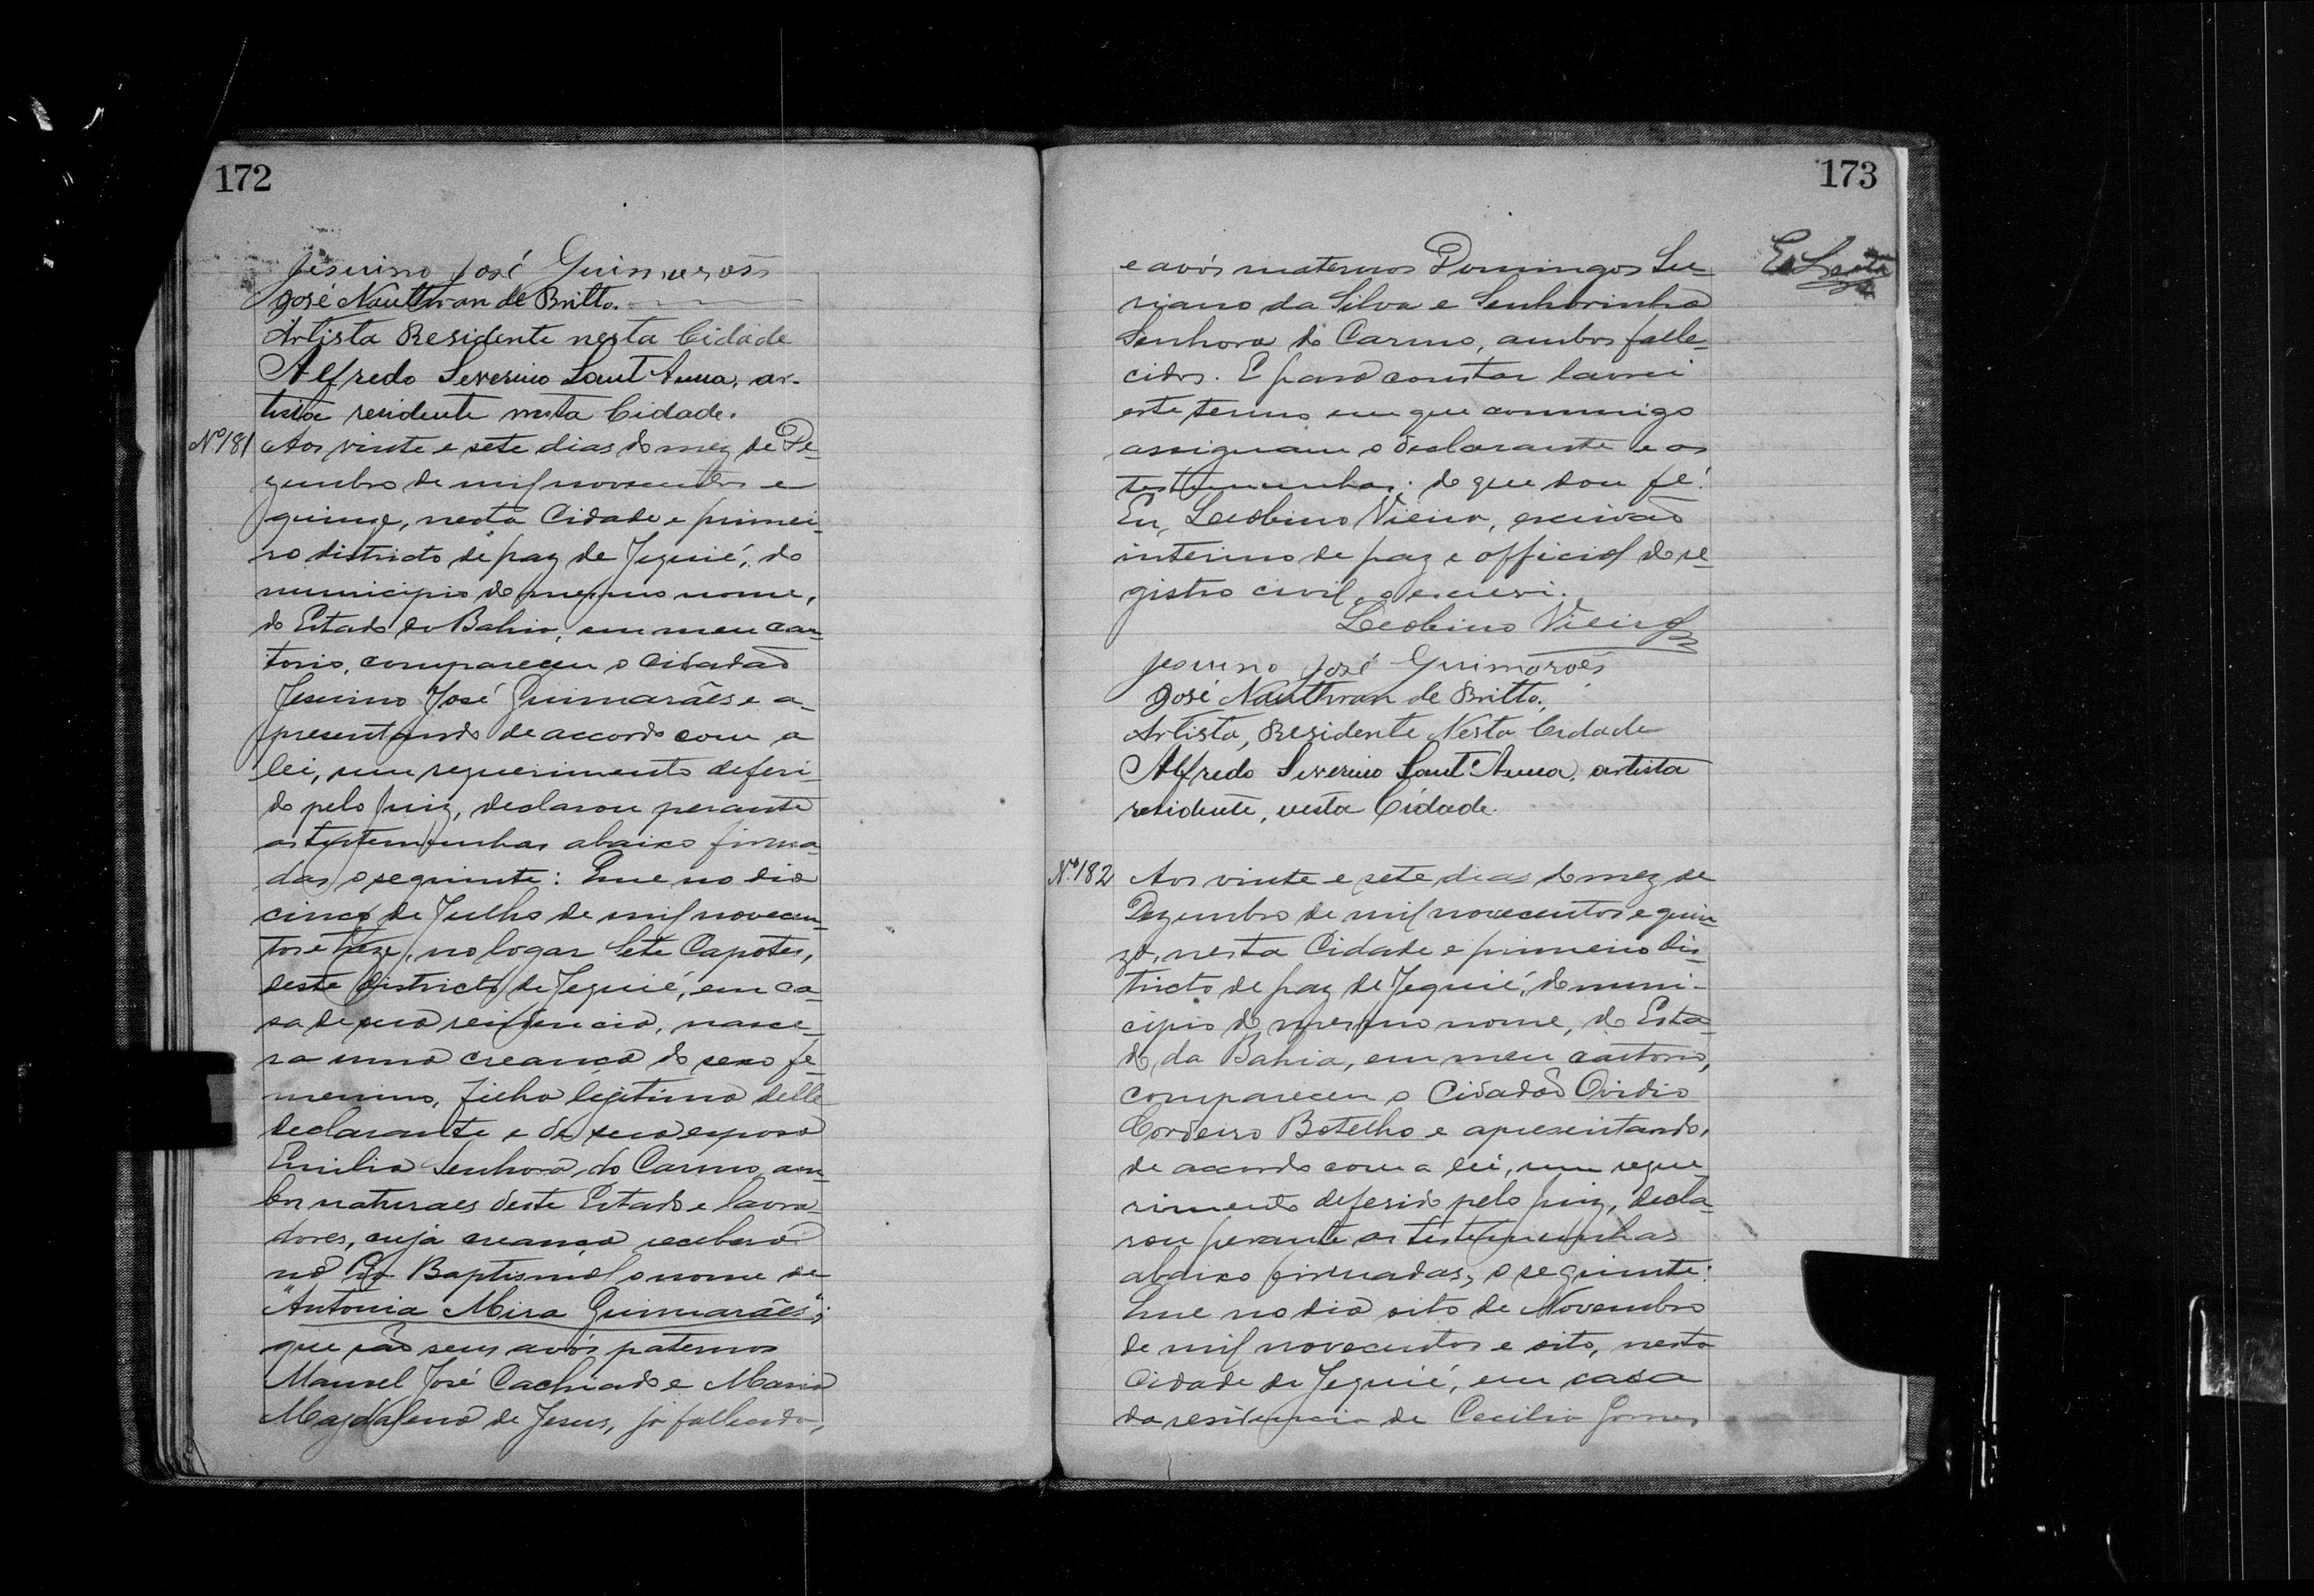 172
Jesuino José Guimarães
José Nauthwan de Britto.
Artista Residente nesta Cidade
Alfredo Severino Sant'Anna, ar-
tista residente nesta Cidade.
Nº 181 Aos vinte e sete dias do mez de De-
zembro de mil novecentos e
quinze, nesta Cidade e primei-
ro districto de paz de Jequié, do
municipio do mesmo nome,
do Estado da Bahia, em meu car-
torio, compareceu o Cidadão
Jesuino José Guimarães e a-
presentando de accordo com a
lei, um requerimento deferi-
do pelo Juiz, declarou perante
as testemunhas abaixo firma-
das o seguinte: Que no dia
cinco de Julho de mil novecen-
tos e treze, no logar Sete Capotes,
deste districto de Jequié, em ca-
sa de sua residencia, nasce-
ra uma creança do sexo fe-
menino, filha legitima delle
declarante e de sua esposa
Emilia Senhora do Carmo, am-
bos naturaes deste Estado e lavra-
dores, cuja creança receberá
na Baptismal o nome de
"Antonia Mira Guimarães";
que são seus avós paternos
Manoel José Cachiado e Maria
Magdalena de Jesus, já fallecida,
173
e avós maternos Domingos Su-
riano da Silva e Senhorinha
Senhora do Carmo, ambos falle-
cidos. E para constar lavrei
este termo em que commigo
assignam o declarante e as
testemunhas; do que dou fé.
Eu, Leobino Vieira, escrivão
interino de paz e official do re-
gistro civil, o escrevi.
Leobino Vieira
Jesuino José Guimarães
José Nauthwan de Britto.
Artista, Residente Nesta Cidade
Alfredo Severino Sant'Anna, artista
residente, nesta Cidade.
Nº 182 Aos vinte e sete dias do mez de
Dezembro de mil novecentos e quin-
ze, nesta Cidade e primeiro dis-
tricto de paz de Jequié, do muni-
cipio do mesmo nome, do Esta-
do da Bahia, em meu cartorio,
compareceu o Cidadão Ovidio
Cordeiro Botelho e apresentando,
de accordo com a lei, um reque-
rimento deferido pelo juiz, decla-
rou perante as testemunhas
abaixo firmadas, o seguinte:
Que no dia oito de Novembro
de mil novecentos e oito, nesta
Cidade de Jequié, em casa
da residencia de Cecilia Gomes